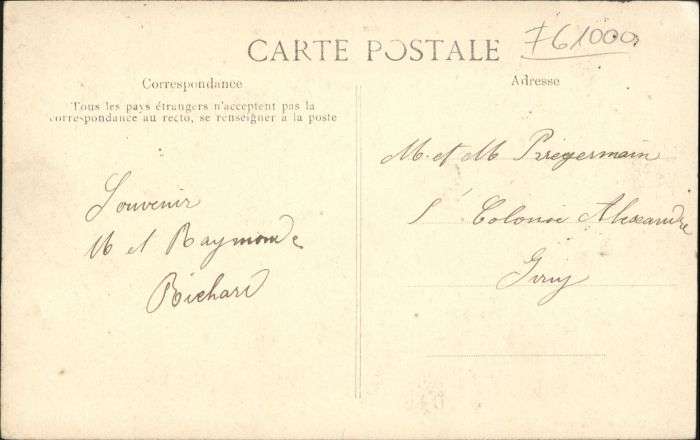 CARTE POSTALE
761000
Correspondance
Tous les pays étrangers n'acceptent pas la
correspondance au recto, se renseigner à la poste
Souvenir
M et Raymonde
Richard
Adresse
M. et M Prégermain
5 Colonie Alexandre